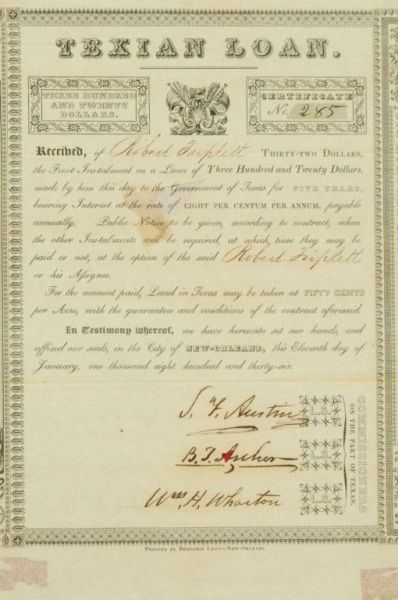 TEXIAN LOAN.
THREE HUNDRED
AND TWENTY
DOLLARS.
CERTIFICATE
No. 285
Received, of Robert Triplett THIRTY-TWO DOLLARS,
the First Instalment on a Loan of Three Hundred and Twenty Dollars,
made by him this day to the Government of Texas for FIVE YEARS,
bearing Interest at the rate of EIGHT PER CENTUM PER ANNUM, payable
annually. Public Notice to be given, according to contract, when
the other Instalments will be required, at which time they may be
paid or not, at the option of the said Robert Triplett
or his Assignee.
For the amount paid, Land in Texas may be taken at FIFTY CENTS
per Acre, with the guarantees and conditions of the contract aforesaid.
In Testimony whereof, we have hereunto set our hands, and
affixed our seals, in the City of NEW-ORLEANS, this Eleventh day of
January, one thousand eight hundred and thirty-six.
S. F. Austin
L.S.
B. T. Archer
L.S.
Wm. H. Wharton
L.S.
COMMISSIONERS
ON THE PART OF TEXAS.
PRINTED BY BENJAMIN LEVY—NEW-ORLEANS.